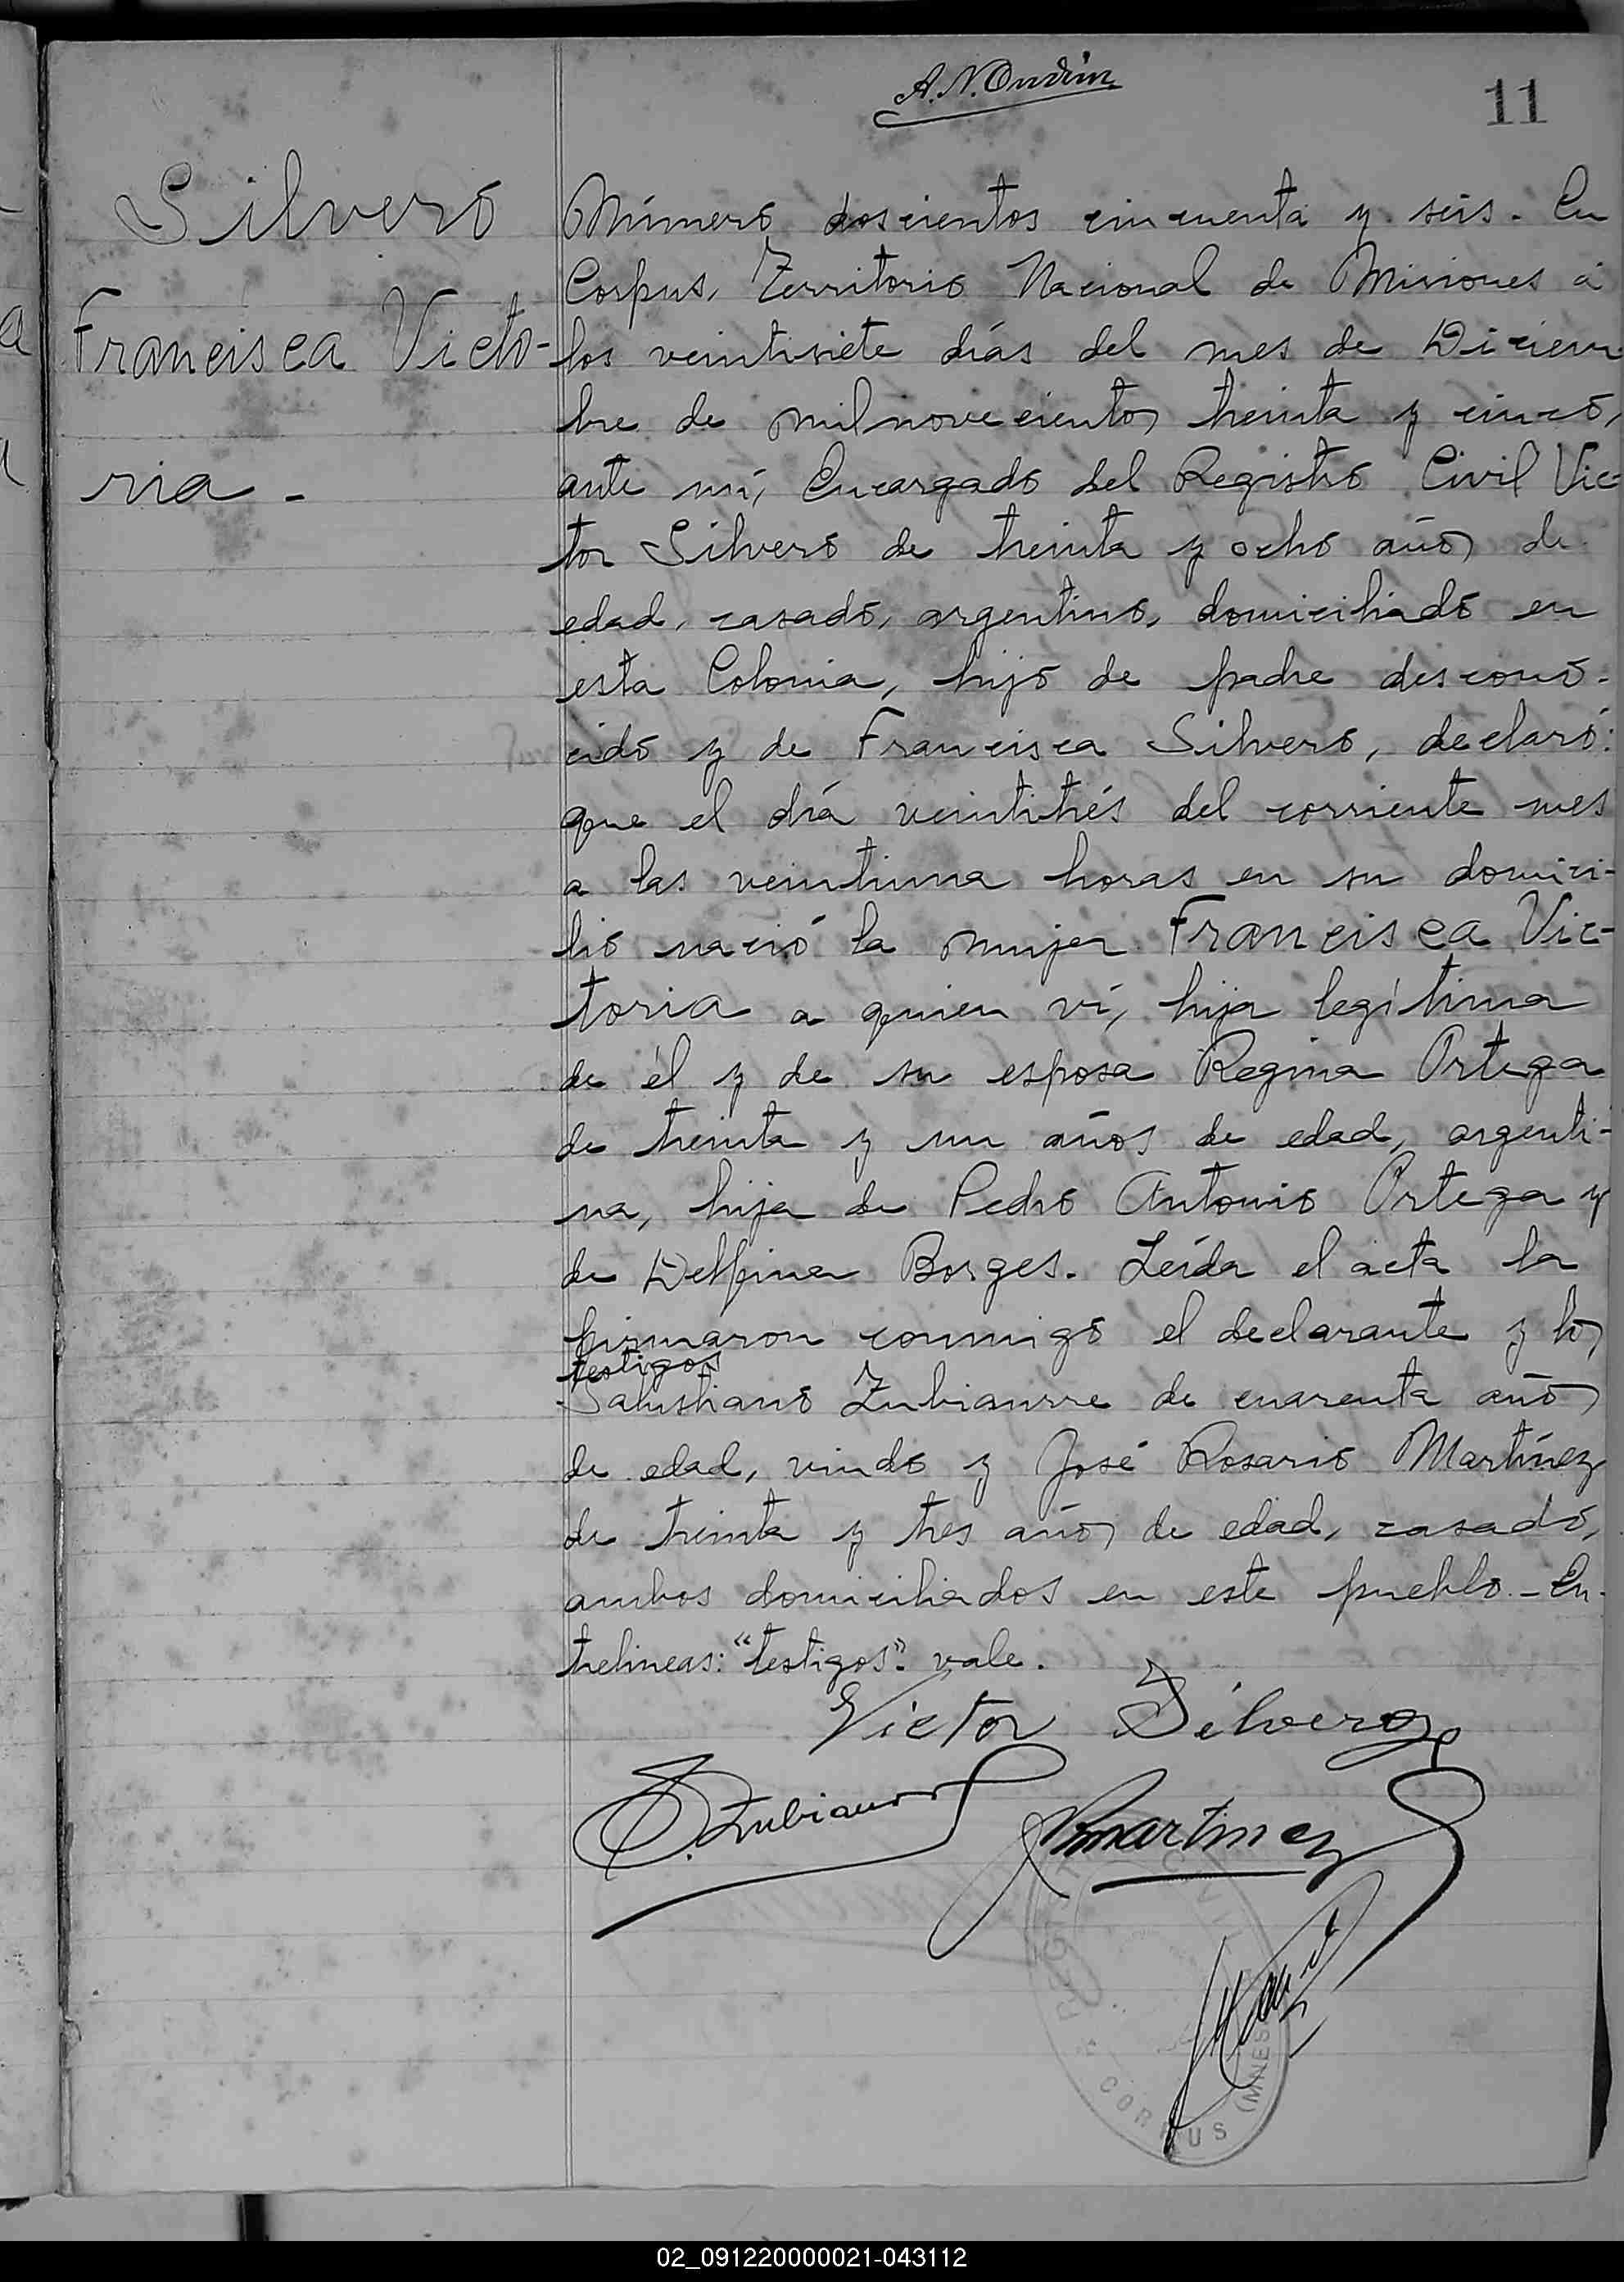 11
Silvero
Francisca Victo-
ria -
Número doscientos cincuenta y seis. En
Corpus, Territorio Nacional de Misiones a
los veintisiete días del mes de Diciem
bre de mil novecientos treinta y cinco,
ante mí, Encargado del Registro Civil Víc-
tor Silvero de treinta y ocho años de
edad, casado, argentino, domiciliado en
esta Colonia, hijo de padre descono-
cido y de Francisca Silvero, declaró:
que el día veintitrés del corriente mes
a las veintiuna horas en su domici-
lio nació la mujer Francisca Vic-
toria a quien ví, hija legítima
de él y de su esposa Regina Ortega
de treinta y un años de edad, argenti-
na, hija de Pedro Antonio Ortega y
de Delfina Borges. Leída el acta la
firmaron conmigo el declarante y los
testigos
Salustiano Zubiaurre de cuarenta años
de edad, viudo y José Rosario Martínez
de treinta y tres años de edad, casado,
ambos domiciliados en este pueblo. - En-
trelineas: "testigos". vale.
Victor Silvero
S. Zubiaurre
JRMartinez
REGISTRO CIVIL
CORPUS (MNES
02_091220000021-043112